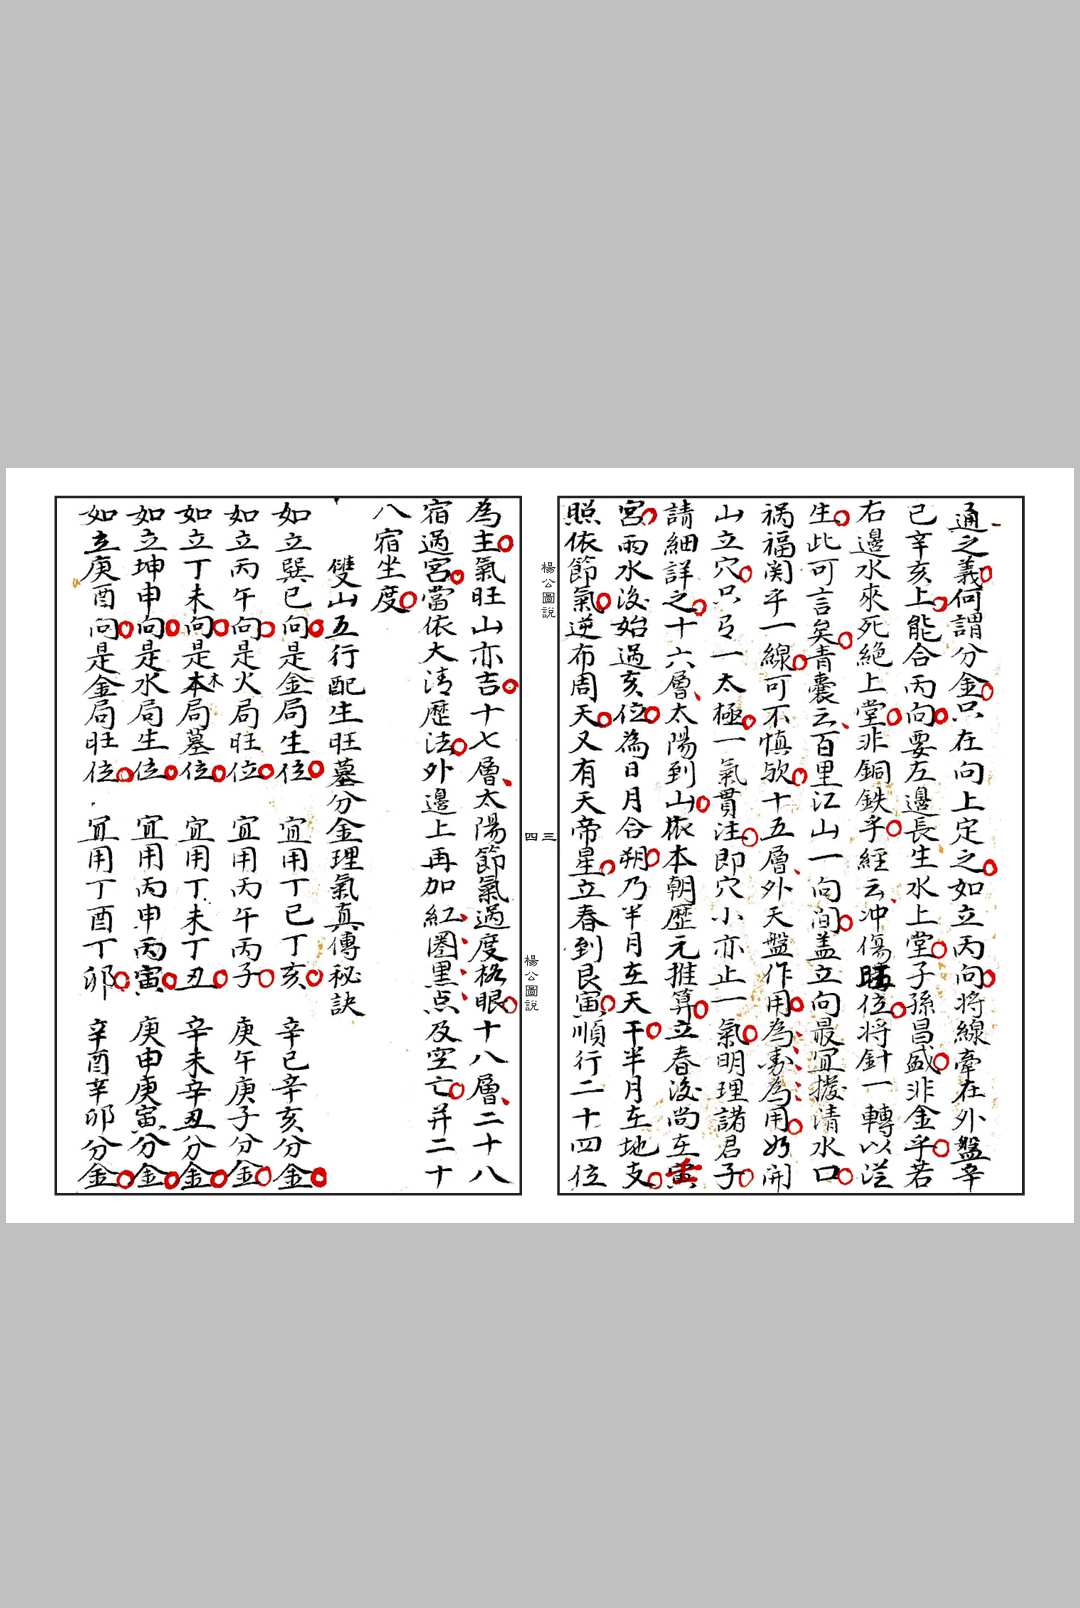 通之義何謂分金只在向上定之如立丙向將線牽在外盤辛
巳辛亥上能合丙向要左邊長生水上堂子孫昌盛非金乎若
右邊水來死絕上堂非銅鉄乎經云冲傷旺位將針一轉以從
生此可言矣青囊云百里江山一向間盖立向最宜撥清水口
祸福関乎一線可不慎欤十五層外天盤作用為夀為用妁開
山立穴只弓一太極一氣貫注即穴小亦止一氣明理諸君子
請細詳之十六層太陽到山依本朝歷元推算立春後尚在寅
宮雨水後始過亥位為日月合朔乃半月在天干半月在地支
照依節氣逆布周天又有天帝星立春到艮寅順行二十四位
楊公圖說
三
為主氣旺山亦吉十七層太陽節氣過度格眼十八層二十八
宿過宮當依大清歷法外邊上再加紅圈黑点及空亡并二十
八宿坐度
雙山五行配生旺墓分金理氣真傳秘訣
如立巽巳向是金局生位 宜用丁巳丁亥 辛巳辛亥分金
如立丙午向是火局旺位 宜用丙午丙子 庚午庚子分金
如立丁未向是本木局墓位 宜用丁未丁丑 辛未辛丑分金
如立坤申向是水局生位 宜用丙申丙寅 庚申庚寅分金
如立庚酉向是金局旺位 宜用丁酉丁卯 辛酉辛卯分金
四
楊公圖說